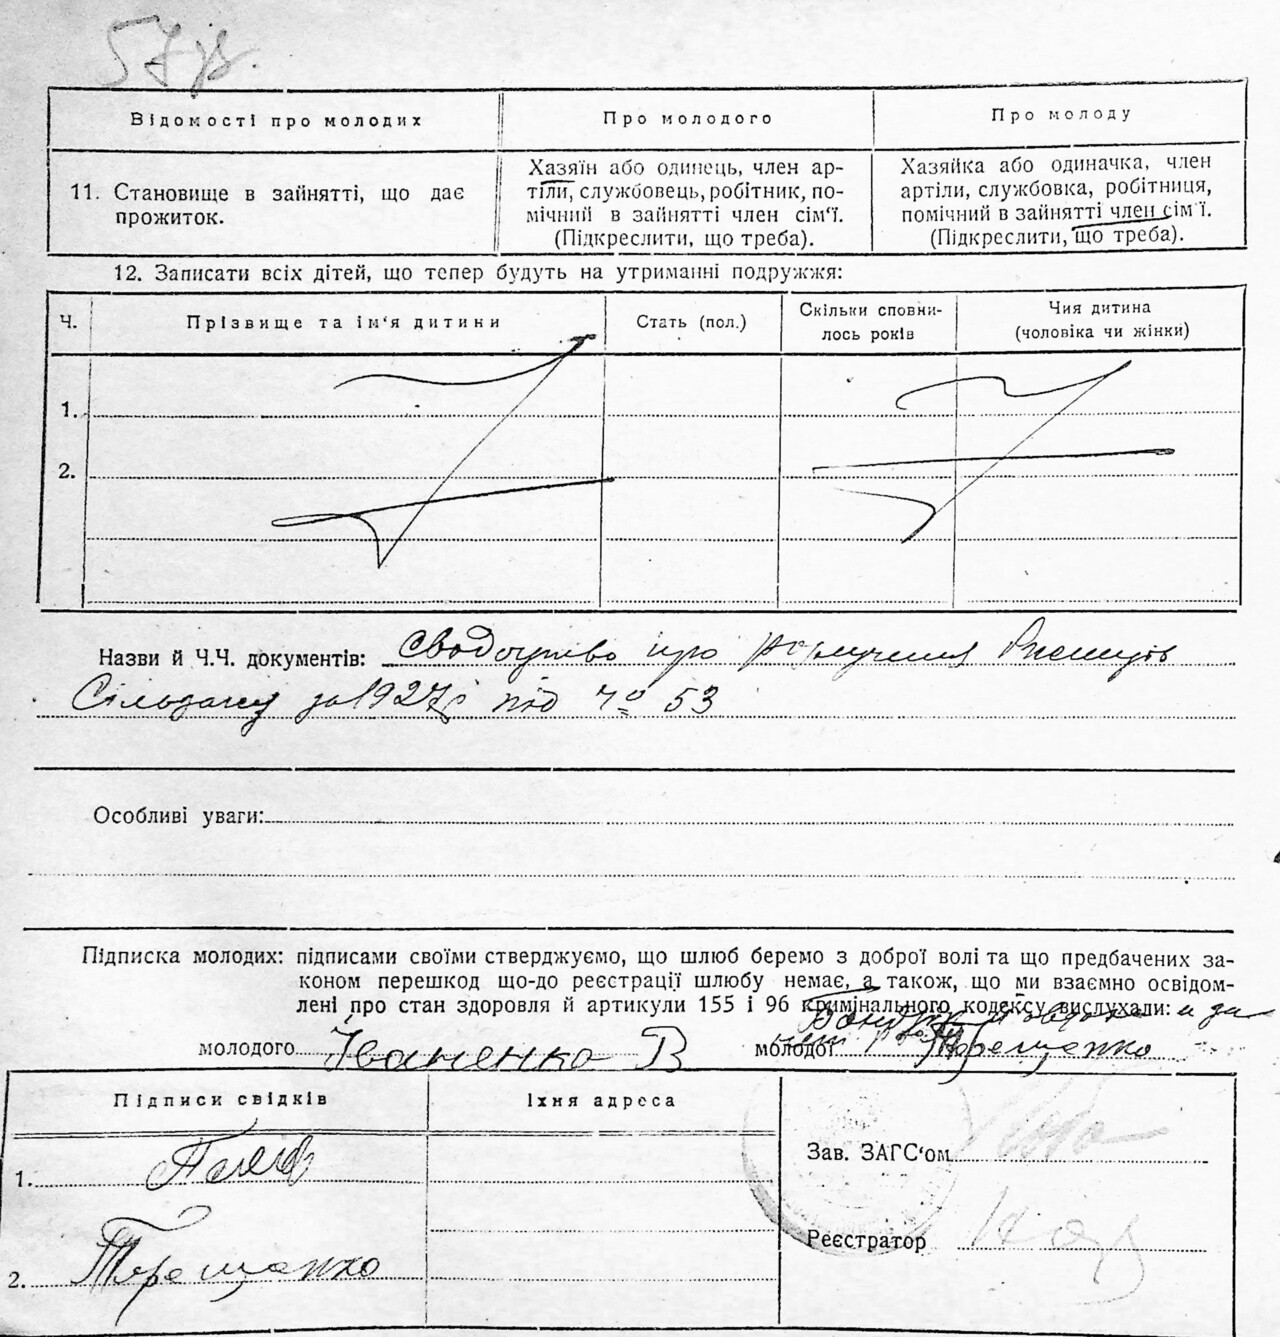 57 зв.
Відомості про молодих
Про молодого
Про молоду
11. Становище в зайнятті, що дає
прожиток.
Хазяїн або одинець, член ар-
тіли, службовець, робітник, по-
мічний в зайнятті член сім'ї.
(Підкреслити, що треба).
Хазяйка або одиначка, член
артіли, службовка, робітниця,
помічний в зайнятті член сім'ї.
(Підкреслити, що треба).
12. Записати всіх дітей, що тепер будуть на утриманні подружжя:
Ч.
Прізвище та ім'я дитини
Стать (пол.)
Скільки сповни-
лось років
Чия дитина
(чоловіка чи жінки)
1.
2.
Назви й Ч.Ч. документів: про
за 1927 р під № 53
Особливі уваги:
Підписка молодих: підписами своїми стверджуємо, що шлюб беремо з доброї волі та що предбачених за-
коном перешкод що-до реєстрації шлюбу немає, а також, що ми взаємно освідом-
лені про стан здоровля й артикули 155 і 96 кримінального кодексу вислухали: и за
молодого Іваненко В молодої Терещенко
Підписи свідків
Їхня адреса
1.
2. Терещенко
Зав. ЗАГС'ом
Реєстратор